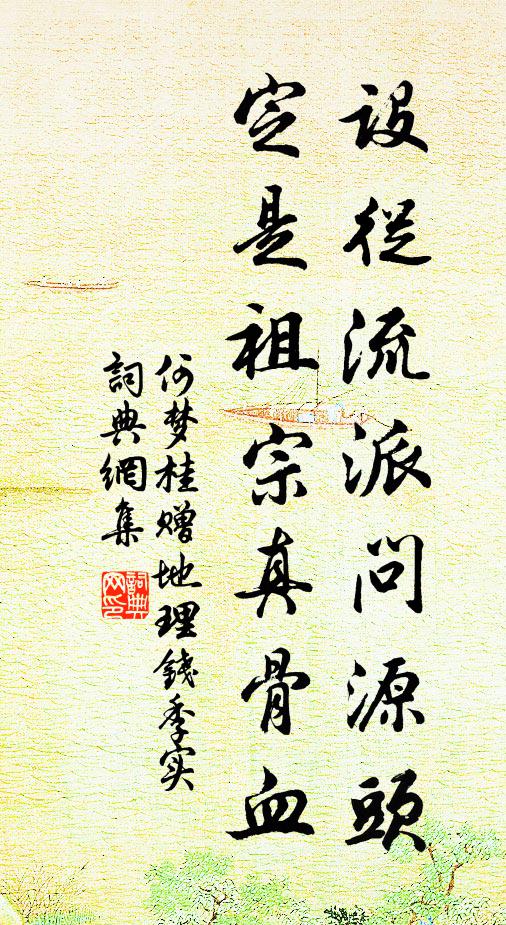 設從流派問源頭
定是祖宗真骨血
何梦桂赠地理錢季实
詞典網集
詞典网印